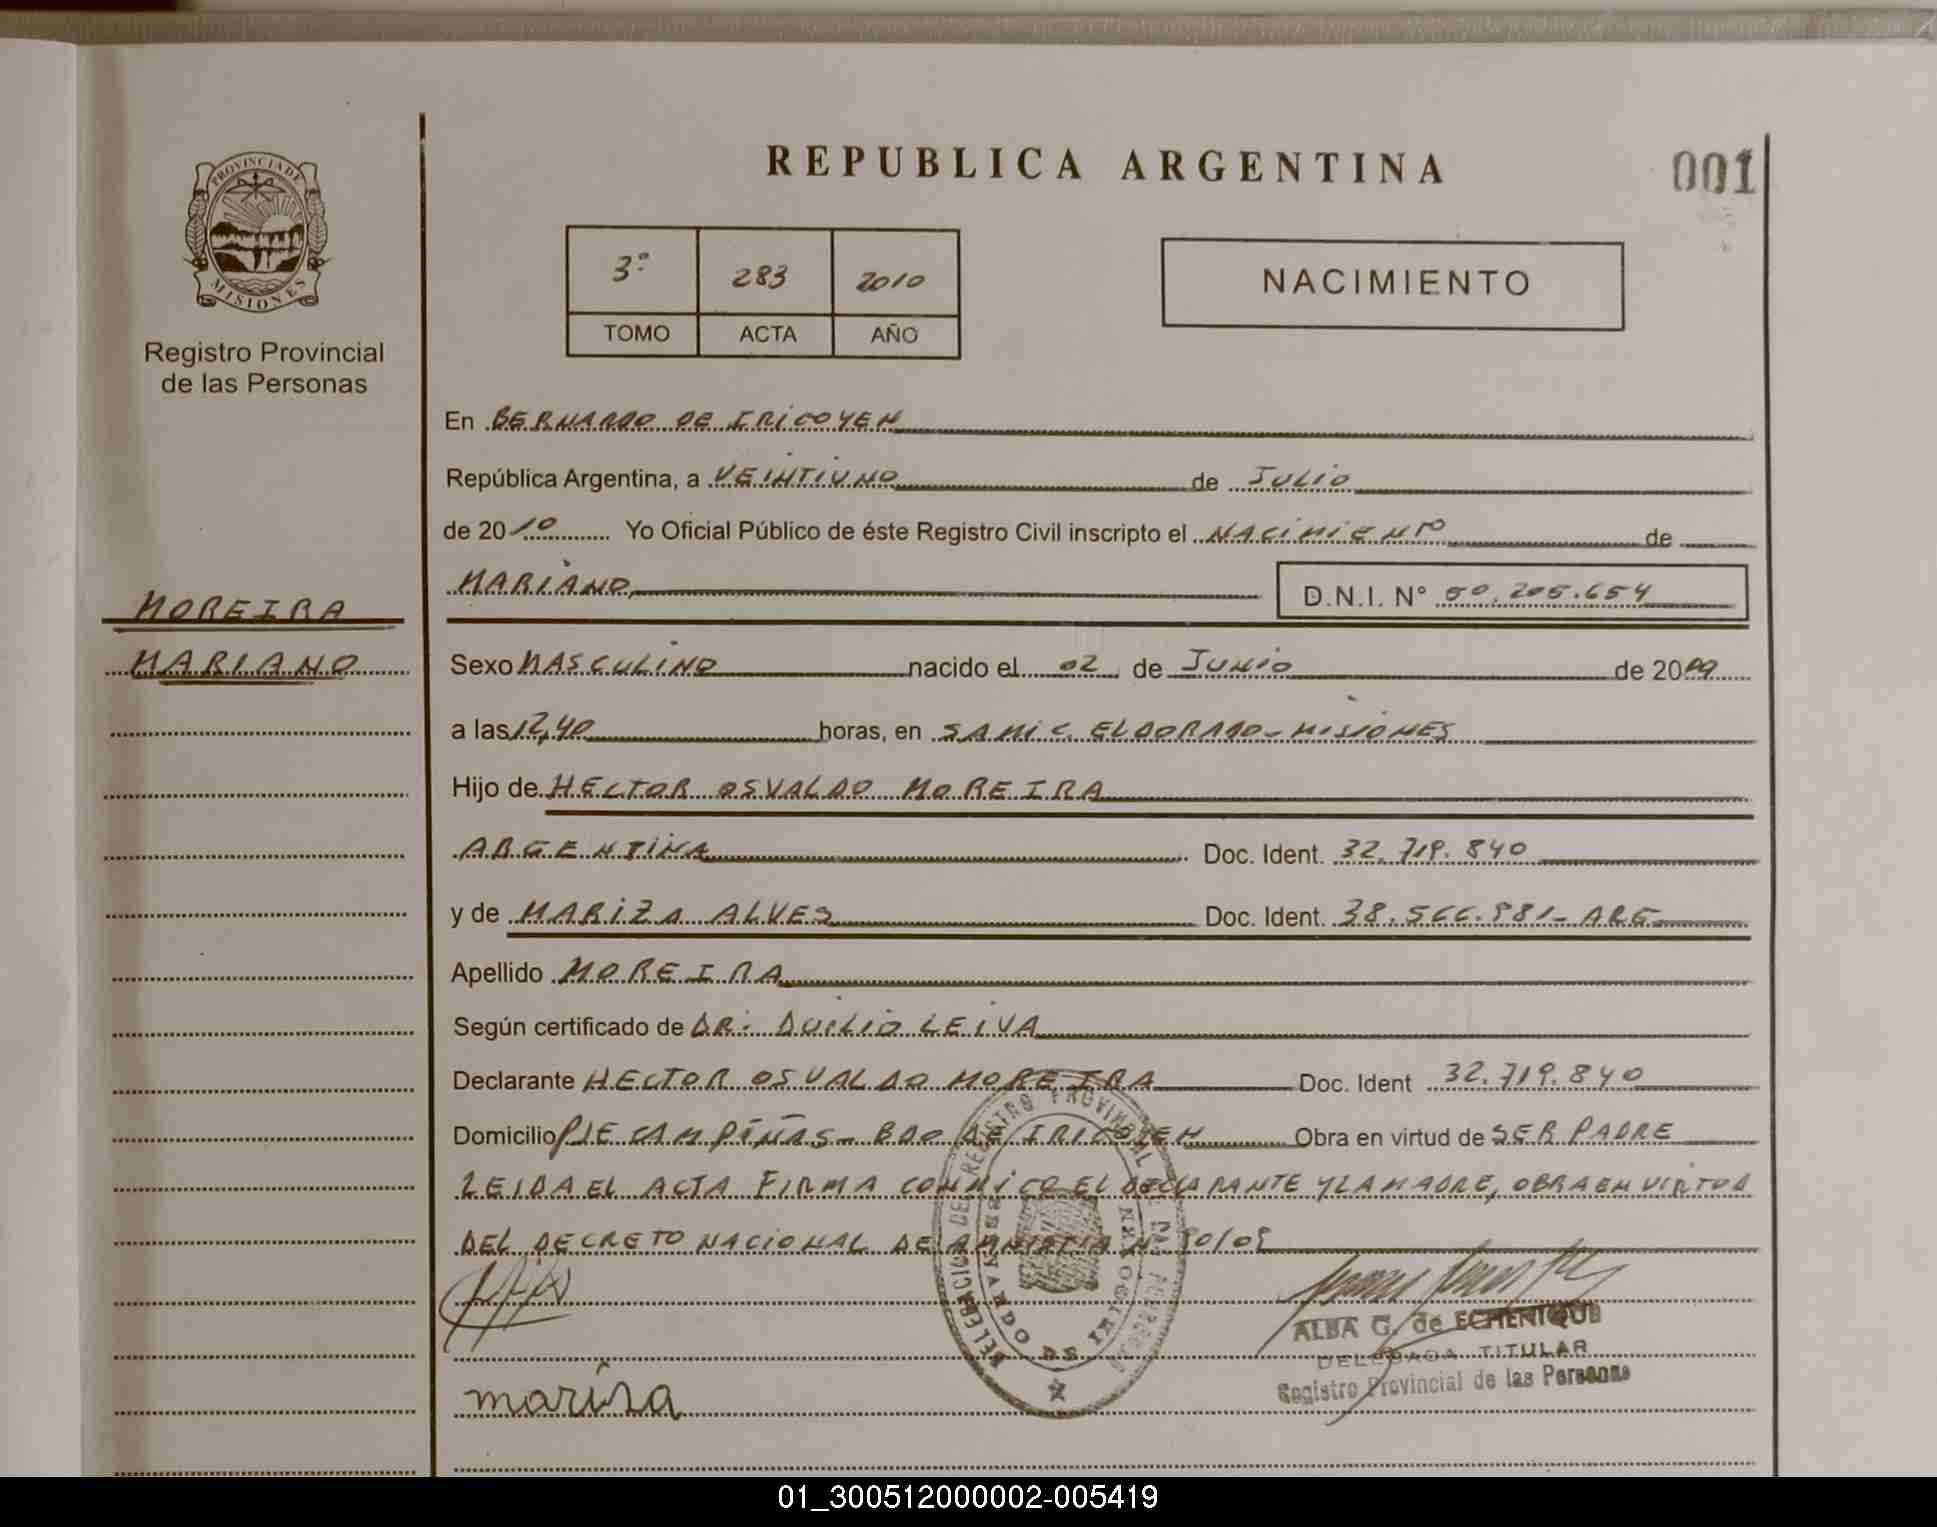 REPUBLICA ARGENTINA
001
PROVINCIA DE
MISIONES
Registro Provincial
de las Personas
3º 283 2010
TOMO ACTA AÑO
NACIMIENTO
En BERNARDO DE IRIGOYEN
República Argentina, a VEINTIUNO de JULIO
de 2010 Yo Oficial Público de éste Registro Civil inscripto el NACIMIENTO de
MARIANO D.N.I. N° 50.205.654
MOREIRA
MARIANO
Sexo MASCULINO nacido el 02 de JUNIO de 2009
a las 12,40 horas, en SAMIC. ELDORADO - MISIONES
Hijo de HECTOR OSVALDO MOREIRA
ARGENTINA Doc. Ident. 32.719.840
y de MARIZA ALVES Doc. Ident. 38.566.981- ARG
Apellido MOREIRA
Según certificado de DR. DUILIO LEIVA
Declarante HECTOR OSVALDO MOREIRA Doc. Ident 32.719.840
Domicilio PJE CAMPIÑAS - BDO DE IRIGOYEN Obra en virtud de SER PADRE
LEIDA EL ACTA FIRMA CONMIGO EL DECLARANTE Y LA MADRE, OBRA EN VIRTUD
DEL DECRETO NACIONAL DE AMNISTIA N° 90/09
DELEGACION DEL REGISTRO PROVINCIAL DE LAS PERSONAS
BERNARDO DE IRIGOYEN
ALBA G. de ECHENIQUE
DELEGADA TITULAR
Registro Provincial de las Personas
mariza
01_300512000002-005419